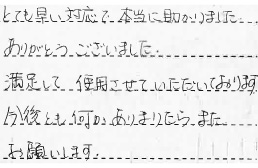 とても早い対応で本当に助かりました。
ありがとうございました。
満足して使用させていただいております
今後とも何かありましたらまた
お願いします。